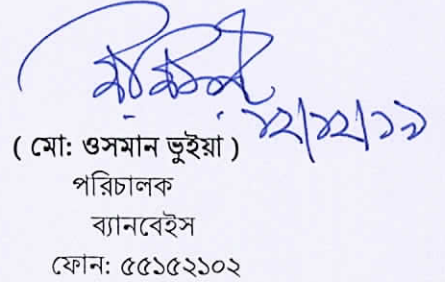 ১২/১২/১৯
( মো: ওসমান ভুইয়া )
পরিচালক
ব্যানবেইস
ফোন: ৫৫১৫২১০২